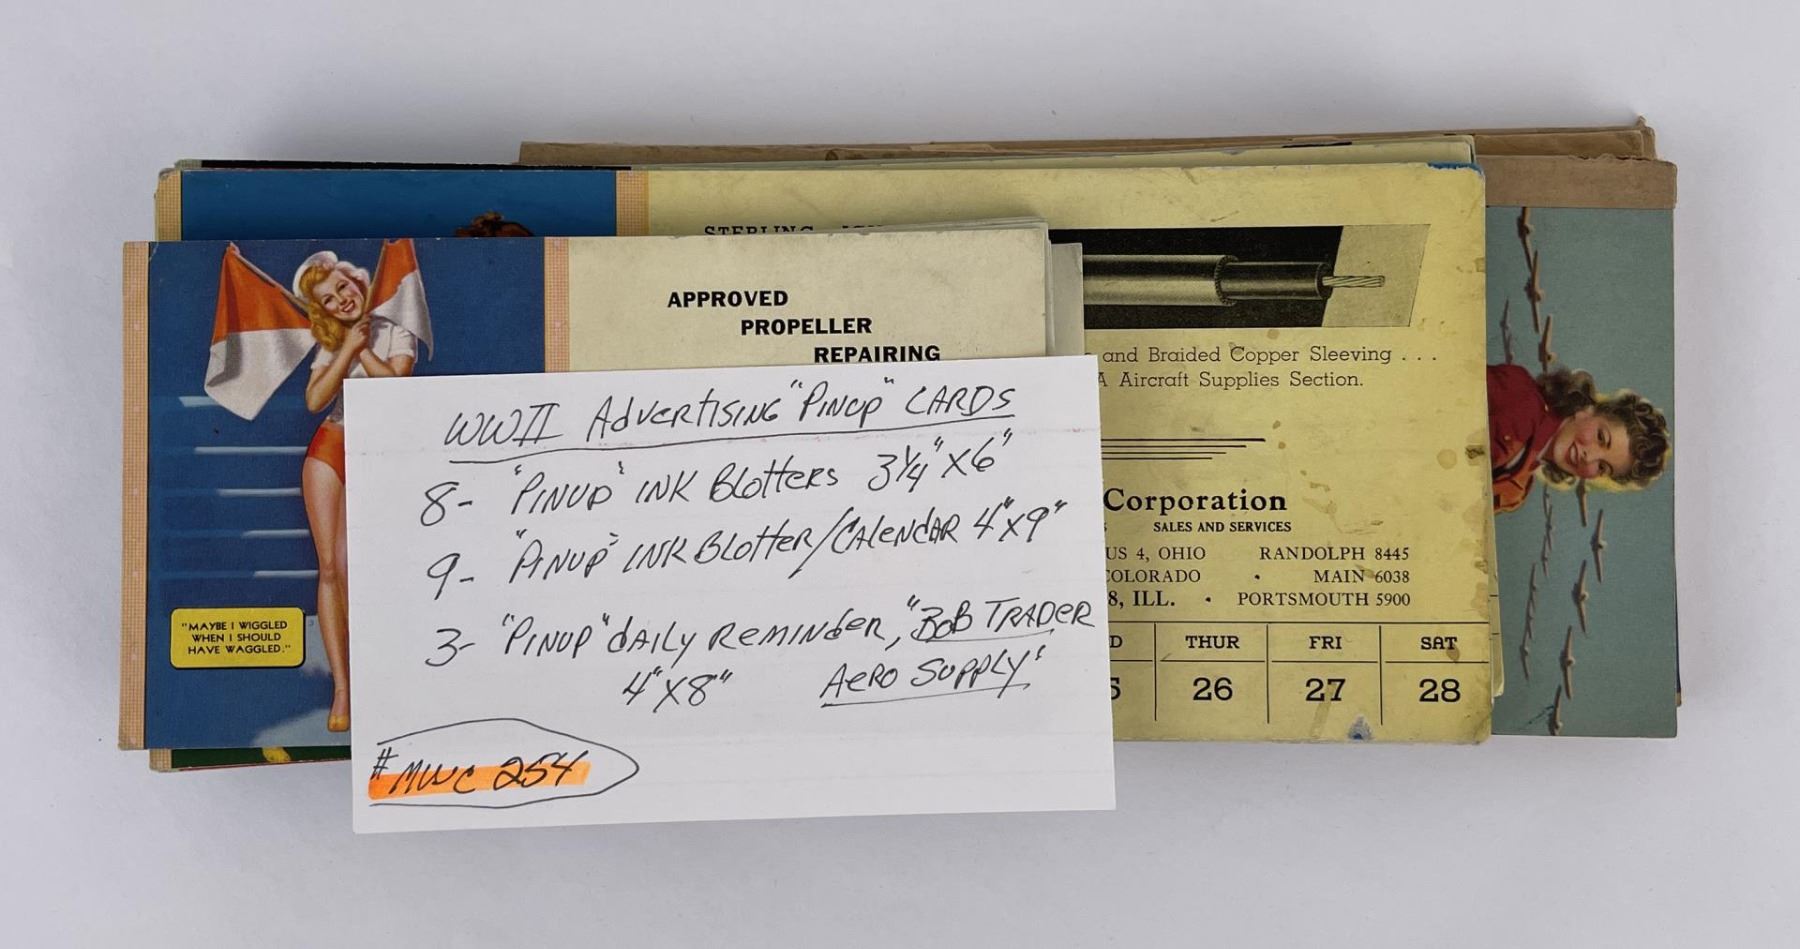 STERLING
APPROVED
PROPELLER
REPAIRING
"MAYBE I WIGGLED
WHEN I SHOULD
HAVE WAGGLED."
and Braided Copper Sleeving . . .
A Aircraft Supplies Section.
Corporation
SALES AND SERVICES
US 4, OHIO RANDOLPH 8445
COLORADO • MAIN 6038
8, ILL. • PORTSMOUTH 5900
D THUR FRI SAT
5 26 27 28
WWII Advertising "Pinup" CARDS
8- "Pinup" INK Blotters 3 1/4" X 6"
9- "Pinup" INK Blotter/Calendar 4" X 9"
3- "Pinup" daily Reminder, "Bob Trader
4" X 8" Aero Supply"
# MWC 254